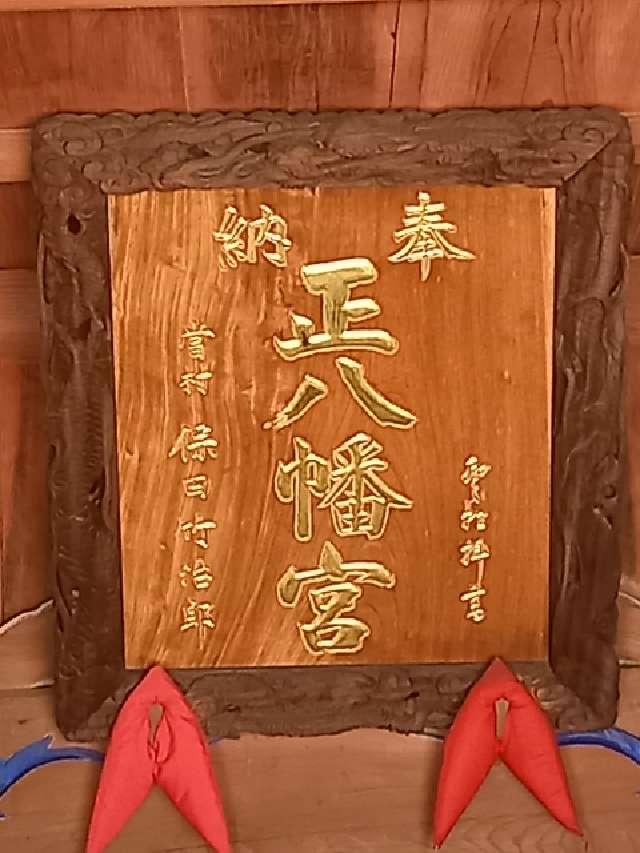 奉納
正八幡宮
當村 保田竹治郎